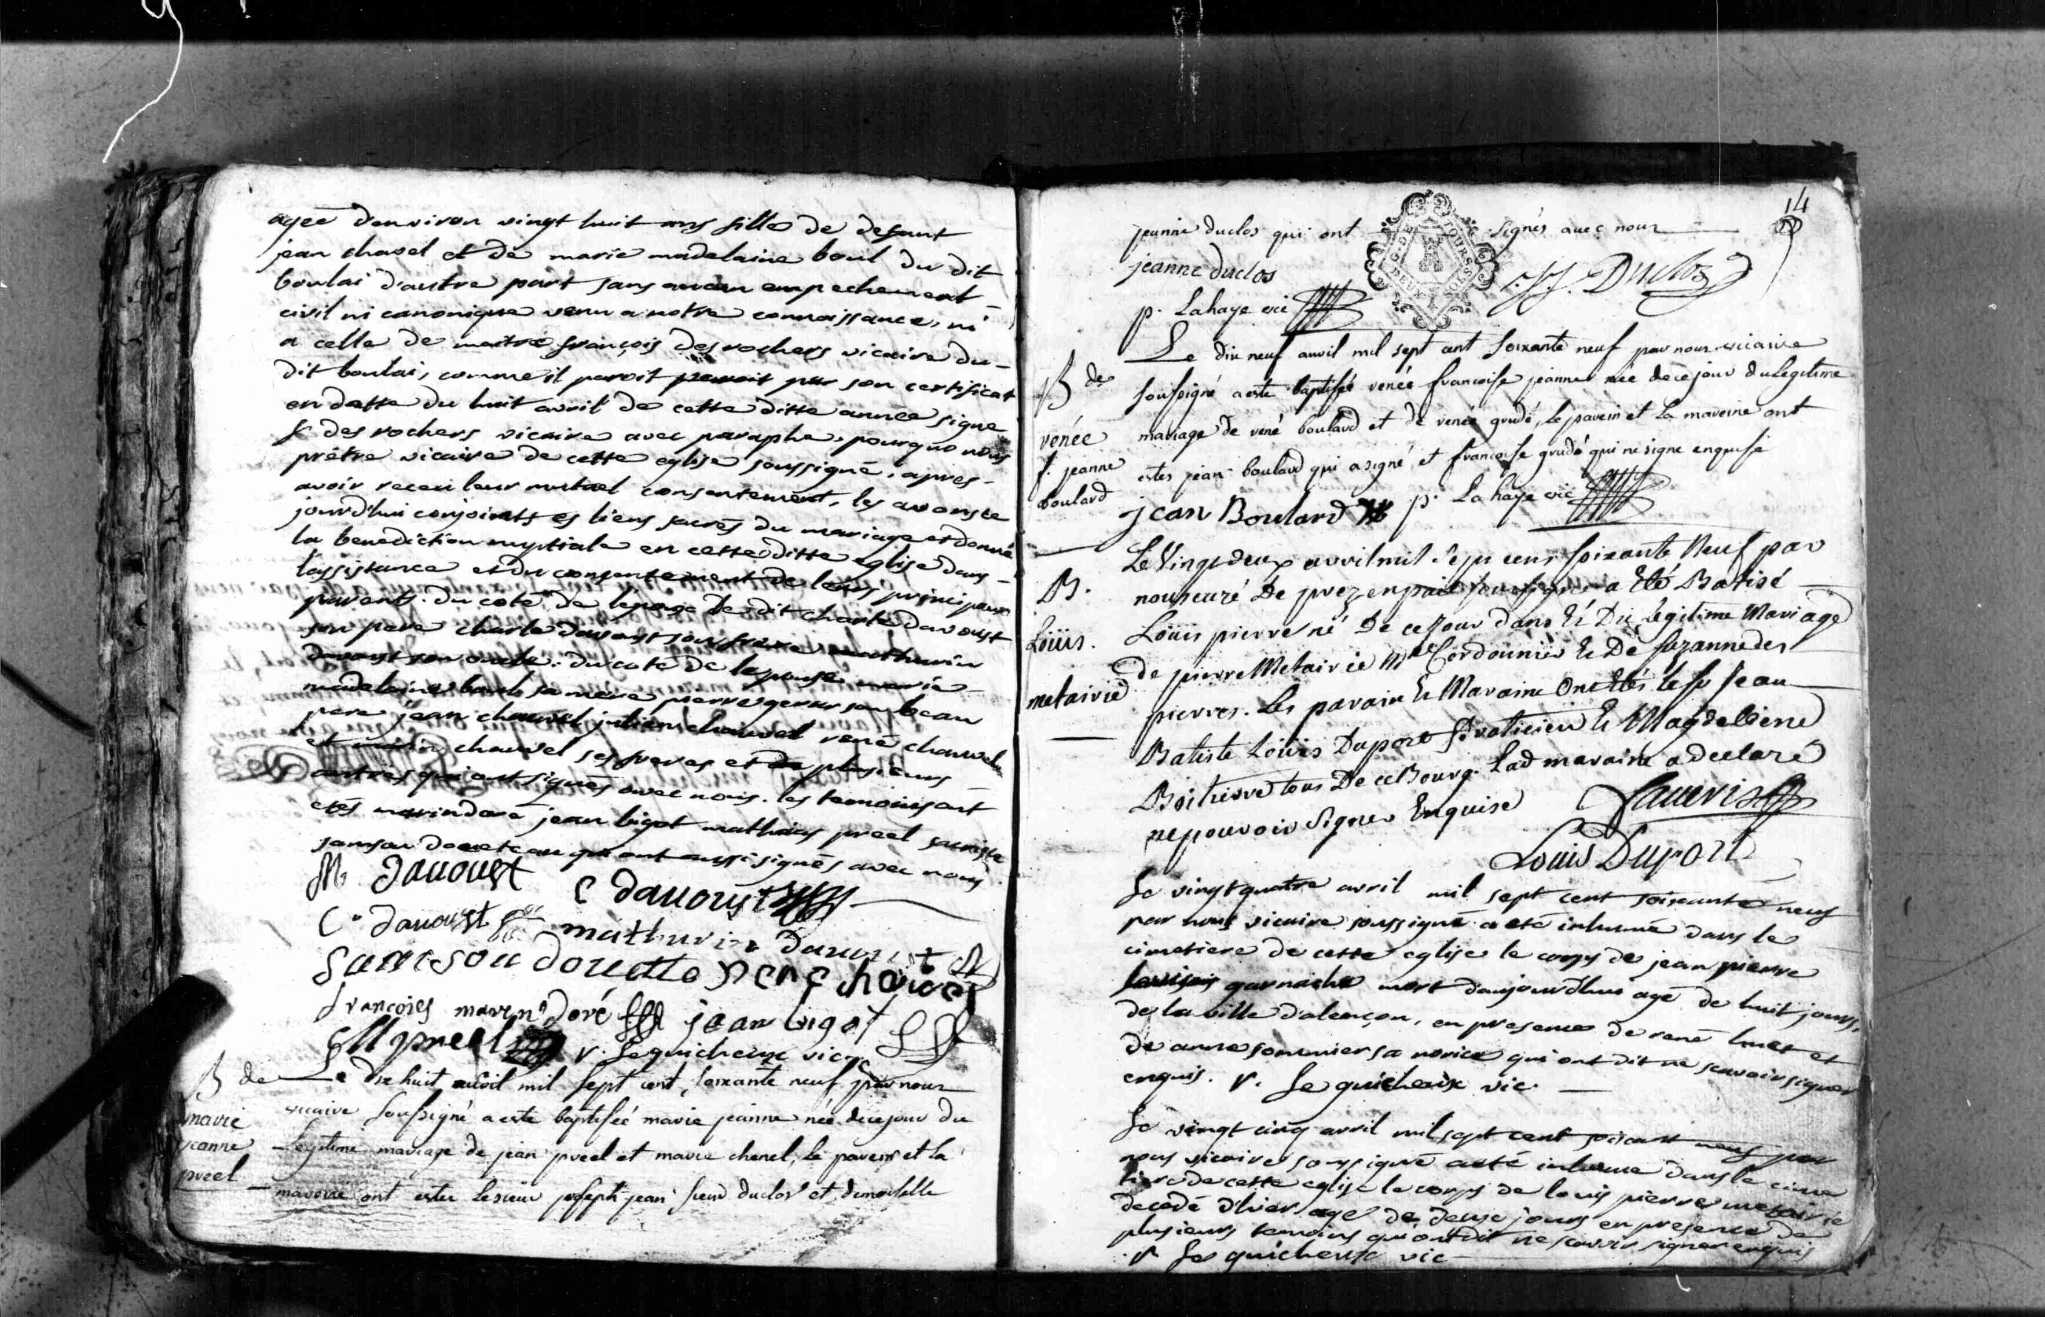 agée d'environ vingt huit ans fille de defunt
jean chavel et de marie madelaine bouil du dit
boulai d'autre part sans aucun empechement
civil ni canonique venu a notre connoissance, ni
a celle de maitre françois des rochers vicaire du
dit boulai, comme il paroit par son certificat
en datte du huit avril de cette ditte année signé
f. des rochers vicaire avec paraphe, pourquoi nous
prêtre vicaire de cette eglise soussigné, apres
avoir receu leur mutuel consentement, les avons
jourd'hui conjoints es liens sacrés du mariage et donné
la benediction nuptiale en cette ditte eglise dans
l'assistance et du consentement de leurs principaux
parents. du coté de l'epoux le dit charle davoust
son pere charle davoust son frere mathurin
davoust son oncle. du coté de l'epouse marie
madelaine sa mere pierre son beau
pere jean chauvel julien chauvel rené chauvel
et chauvel ses freres et de plusieurs
autres qui ont signés avec nous. les temoins ont
etés marin doré jean bigot mathieu preel
samson doueteau qui ont aussi signés avec nous
M Davoust C davoust
C. davoust mathurin Davoust
Samson douette rene chauvel
françoies marin doré jean bigot
M preel V. Le quicheux vic
B de Le dix huit avril mil sept cent soixante neuf par nous
marie vicaire soussigné a esté baptisée marie jeanne née de ce jour du
jeanne Legitime mariage de jean preel et marie chenel, le parein et la
preel mareine ont estes le sieur joseph jean sieur duclos et demoiselle
14
jeanne duclos qui ont signés avec nous
G. DE TOURS
jeanne duclos J.J. Duclos
p. Lahaye vic
Le dix neuf avril mil sept cent soixante neuf par nous vicaire
B de soussigné a esté baptisée renée francoise jeanne née de ce jour du legitime
renée mariage de rené boulard et de renée grudé, le parein et la mareine ont
f. jeanne estes jean boulard qui a signé et francoise grudé qui ne signe enquise
boulard jean Boulard p. La haye vic
Le Vingt deux avril mil sept cens soixante Neuf par
B. nous curé De prez en pail soussigné a Eté Batisé
Loüis. Loüis pierre né De ce jour dans Et Du Legitime Mariage
metairie de pierre Metairie Md Cordounier Et De Suzanne des
pierres. Les parain Et Maraine Ont Etés le Sr Jean
Batiste Loüis Duport Praticien Et Magdeleine
Boitiere tous De ce Bourg. Lad maraine a declaré
ne pouvoir signer Enquise
Louis Duport
Le vingt quatre avril mil sept cent soixante neuf
par nous vicaire soussigné a eté inhumé dans le
cimetiere de cette eglise le corps de jean pierre
garnache mort d'aujourd'hui agé de huit jours,
de la ville d'alençon, en presence de rené et
de anne sommier sa norice qui ont dit ne scavoir signer
enquis. V. Le quicheux vic.
Le vingt cinq avril mil sept cent soixante neuf par
nous vicaire soussigné a eté inhumé dans le cime
tiere de cette eglise le corps de louis pierre metairie
decedé d'hier agé de deux jours en presence de
plusieurs temoins qui ont dit ne scavoir signer enquis
V. Le quicheux vic